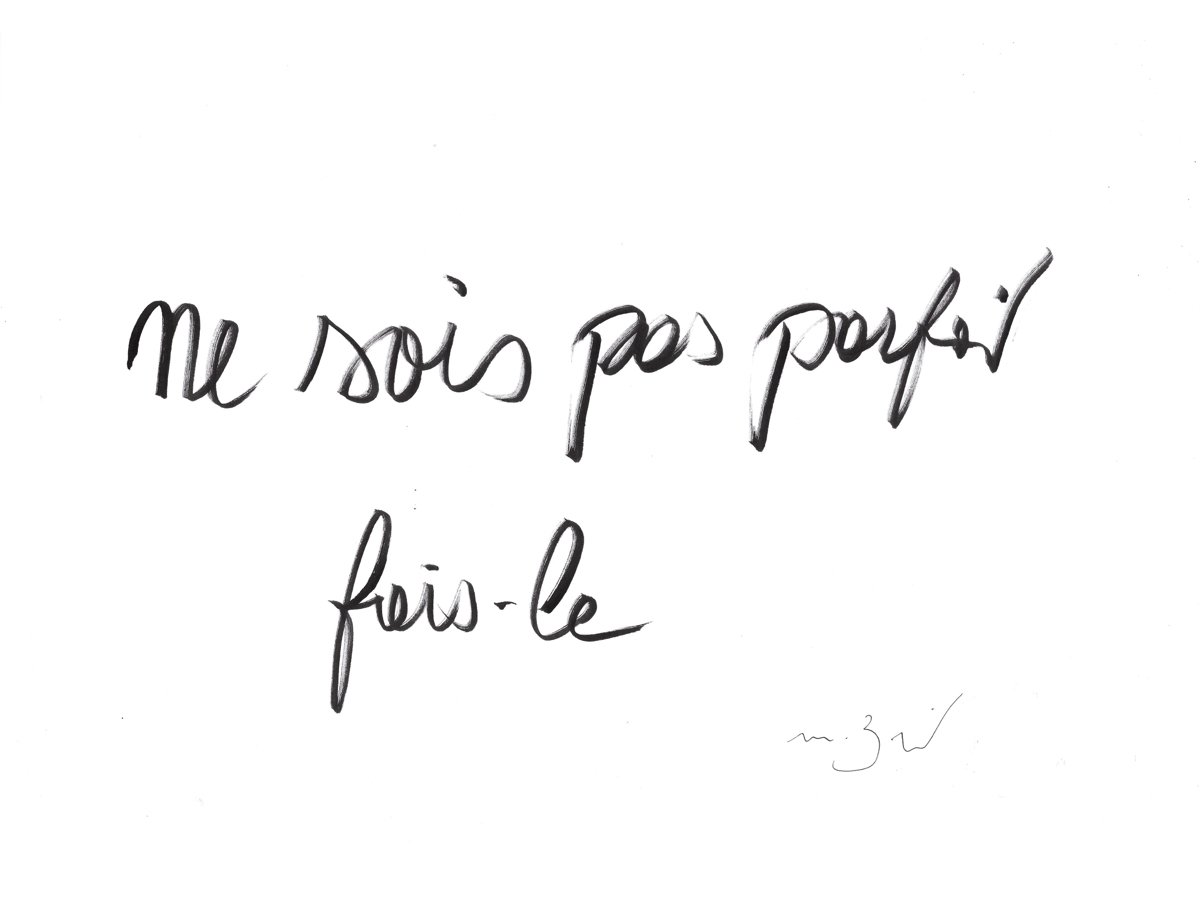 ne sois pas parfait
fais-le